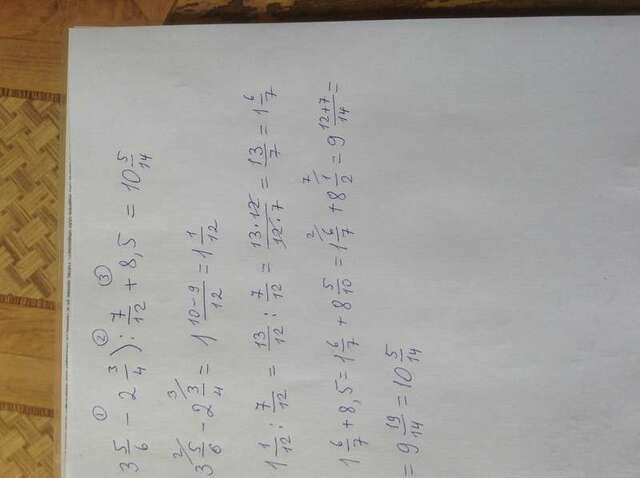 ① ② ③
3 5/6 − 2 3/4) : 7/12 + 8,5 = 10 5/14
3 5/6 (2) − 2 3/4 (3) = 1 (10−9)/12 = 1 1/12
1 1/12 : 7/12 = 13/12 : 7/12 = (13·12)/(12·7) = 13/7 = 1 6/7
1 6/7 + 8,5 = 1 6/7 + 8 5/10 = 1 6/7 (2) + 8 1/2 (7) = 9 (12+7)/14 =
= 9 19/14 = 10 5/14